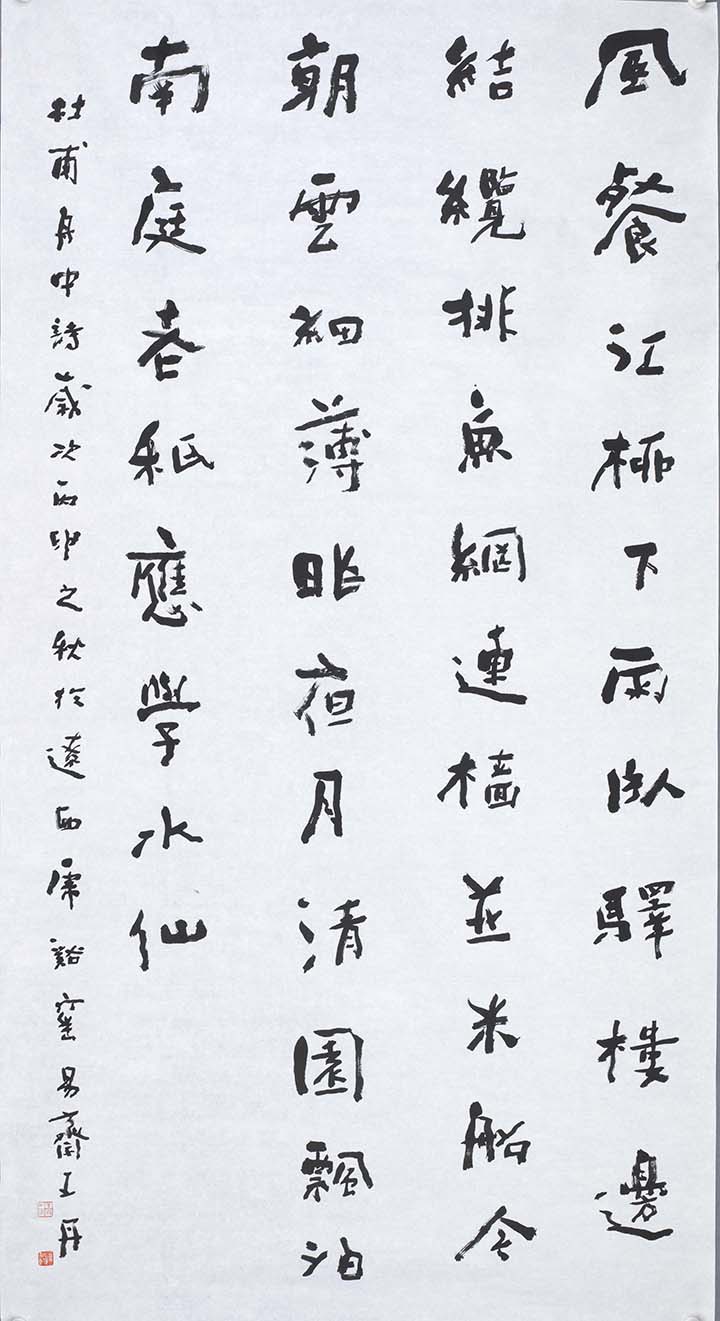 風餐江柳下雨臥驛樓邊
結纜排魚網連檣並米船今
朝雲細薄昨夜月清園飄泊
南庭老秖應學水仙
杜甫舟中詩歲次丙申之秋於遼西虎谿窯易齋王丹